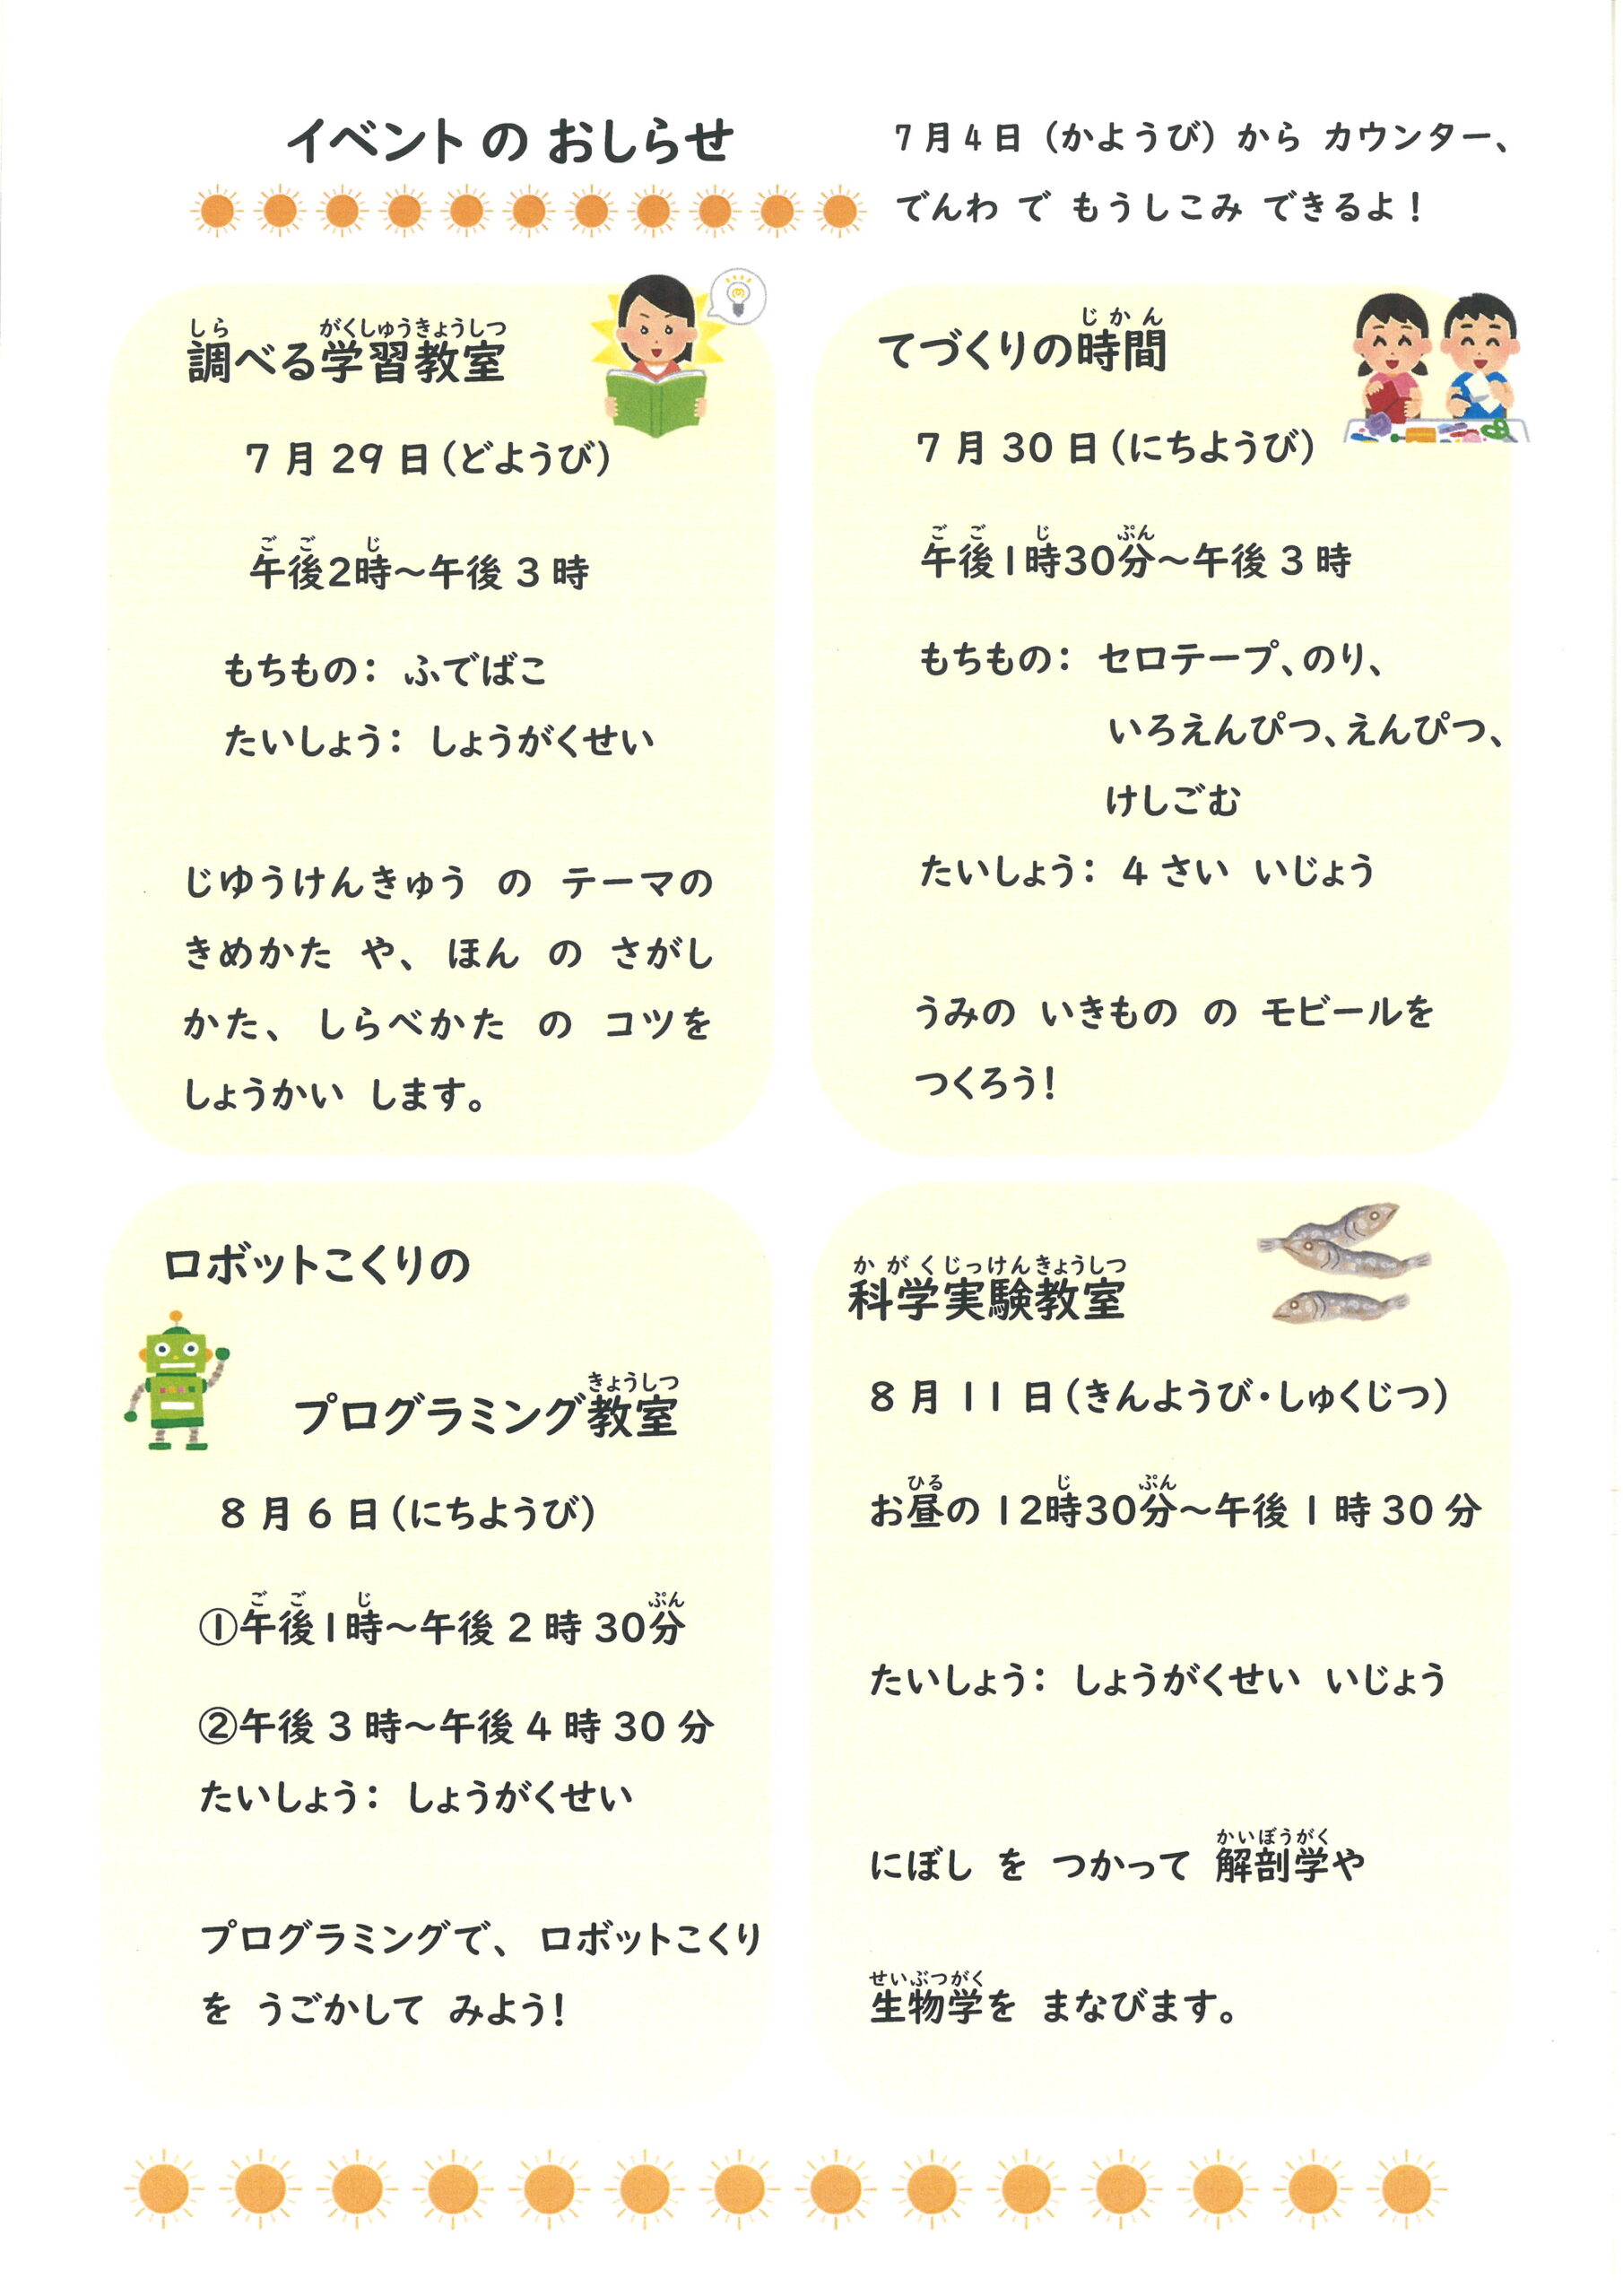 イベント の おしらせ
7月4日（かようび）から カウンター、
でんわ で もうしこみ できるよ！
しら がくしゅうきょうしつ
調べる学習教室
7月29日（どようび）
ごご じ
午後2時～午後3時
もちもの： ふでばこ
たいしょう： しょうがくせい
じゆうけんきゅう の テーマの
きめかた や、 ほん の さがし
かた、 しらべかた の コツを
しょうかい します。
じかん
てづくりの時間
7月30日（にちようび）
ごご じ ぷん
午後1時30分～午後3時
もちもの： セロテープ、のり、
いろえんぴつ、えんぴつ、
けしごむ
たいしょう： 4さい いじょう
うみの いきもの の モビールを
つくろう！
ロボットこくりの
きょうしつ
プログラミング教室
8月6日（にちようび）
ごご じ ぷん
①午後1時～午後2時30分
②午後3時～午後4時30分
たいしょう： しょうがくせい
プログラミングで、 ロボットこくり
を うごかして みよう！
かがくじっけんきょうしつ
科学実験教室
8月11日（きんようび・しゅくじつ）
ひる じ ぷん
お昼の12時30分～午後1時30分
たいしょう： しょうがくせい いじょう
かいぼうがく
にぼし を つかって 解剖学や
せいぶつがく
生物学を まなびます。